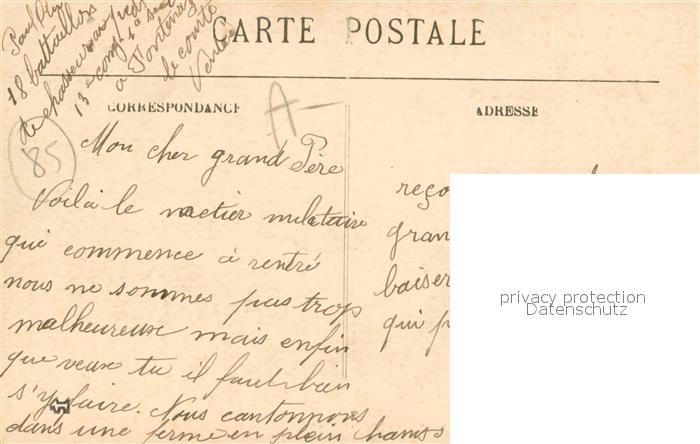 Paul
18 battaillon
de chasseurs au pied
13e comp 1e sec
a Fontenay
le comte
Vendée
CARTE POSTALE
CORRESPONDANCE
ADRESSE
A-
85
Mon cher grand Père
Voilà le metier militaire
qui commence à rentré
nous ne sommes pas trop
malheureux mais enfin
que veux tu il faut bien
s'y faire. Nous cantonnons
dans une ferme en plein champs
reço
gran
baiser
qui p
privacy protection
Datenschutz